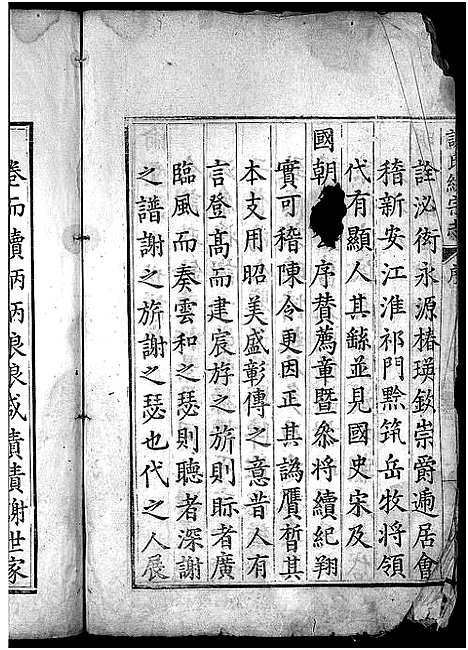 謝氏統宗志 序
詮泌衒永源椿瑛欽崇爵逋居會
稽新安江淮祁門黟筑岳牧將領
代有顯人其繇並見國史宋及
國朝 序賛薦章暨叅將續紀翔
實可稽陳令更因正其譌贋晳其
本支用昭美盛彰傳之意昔人有
言登髙而建宸斿之旂則眎者廣
臨風而奏雲和之瑟則聽者深謝
之譜謝之旂謝之瑟也代之人展
卷而讀炳炳烺烺咸責責謝世家